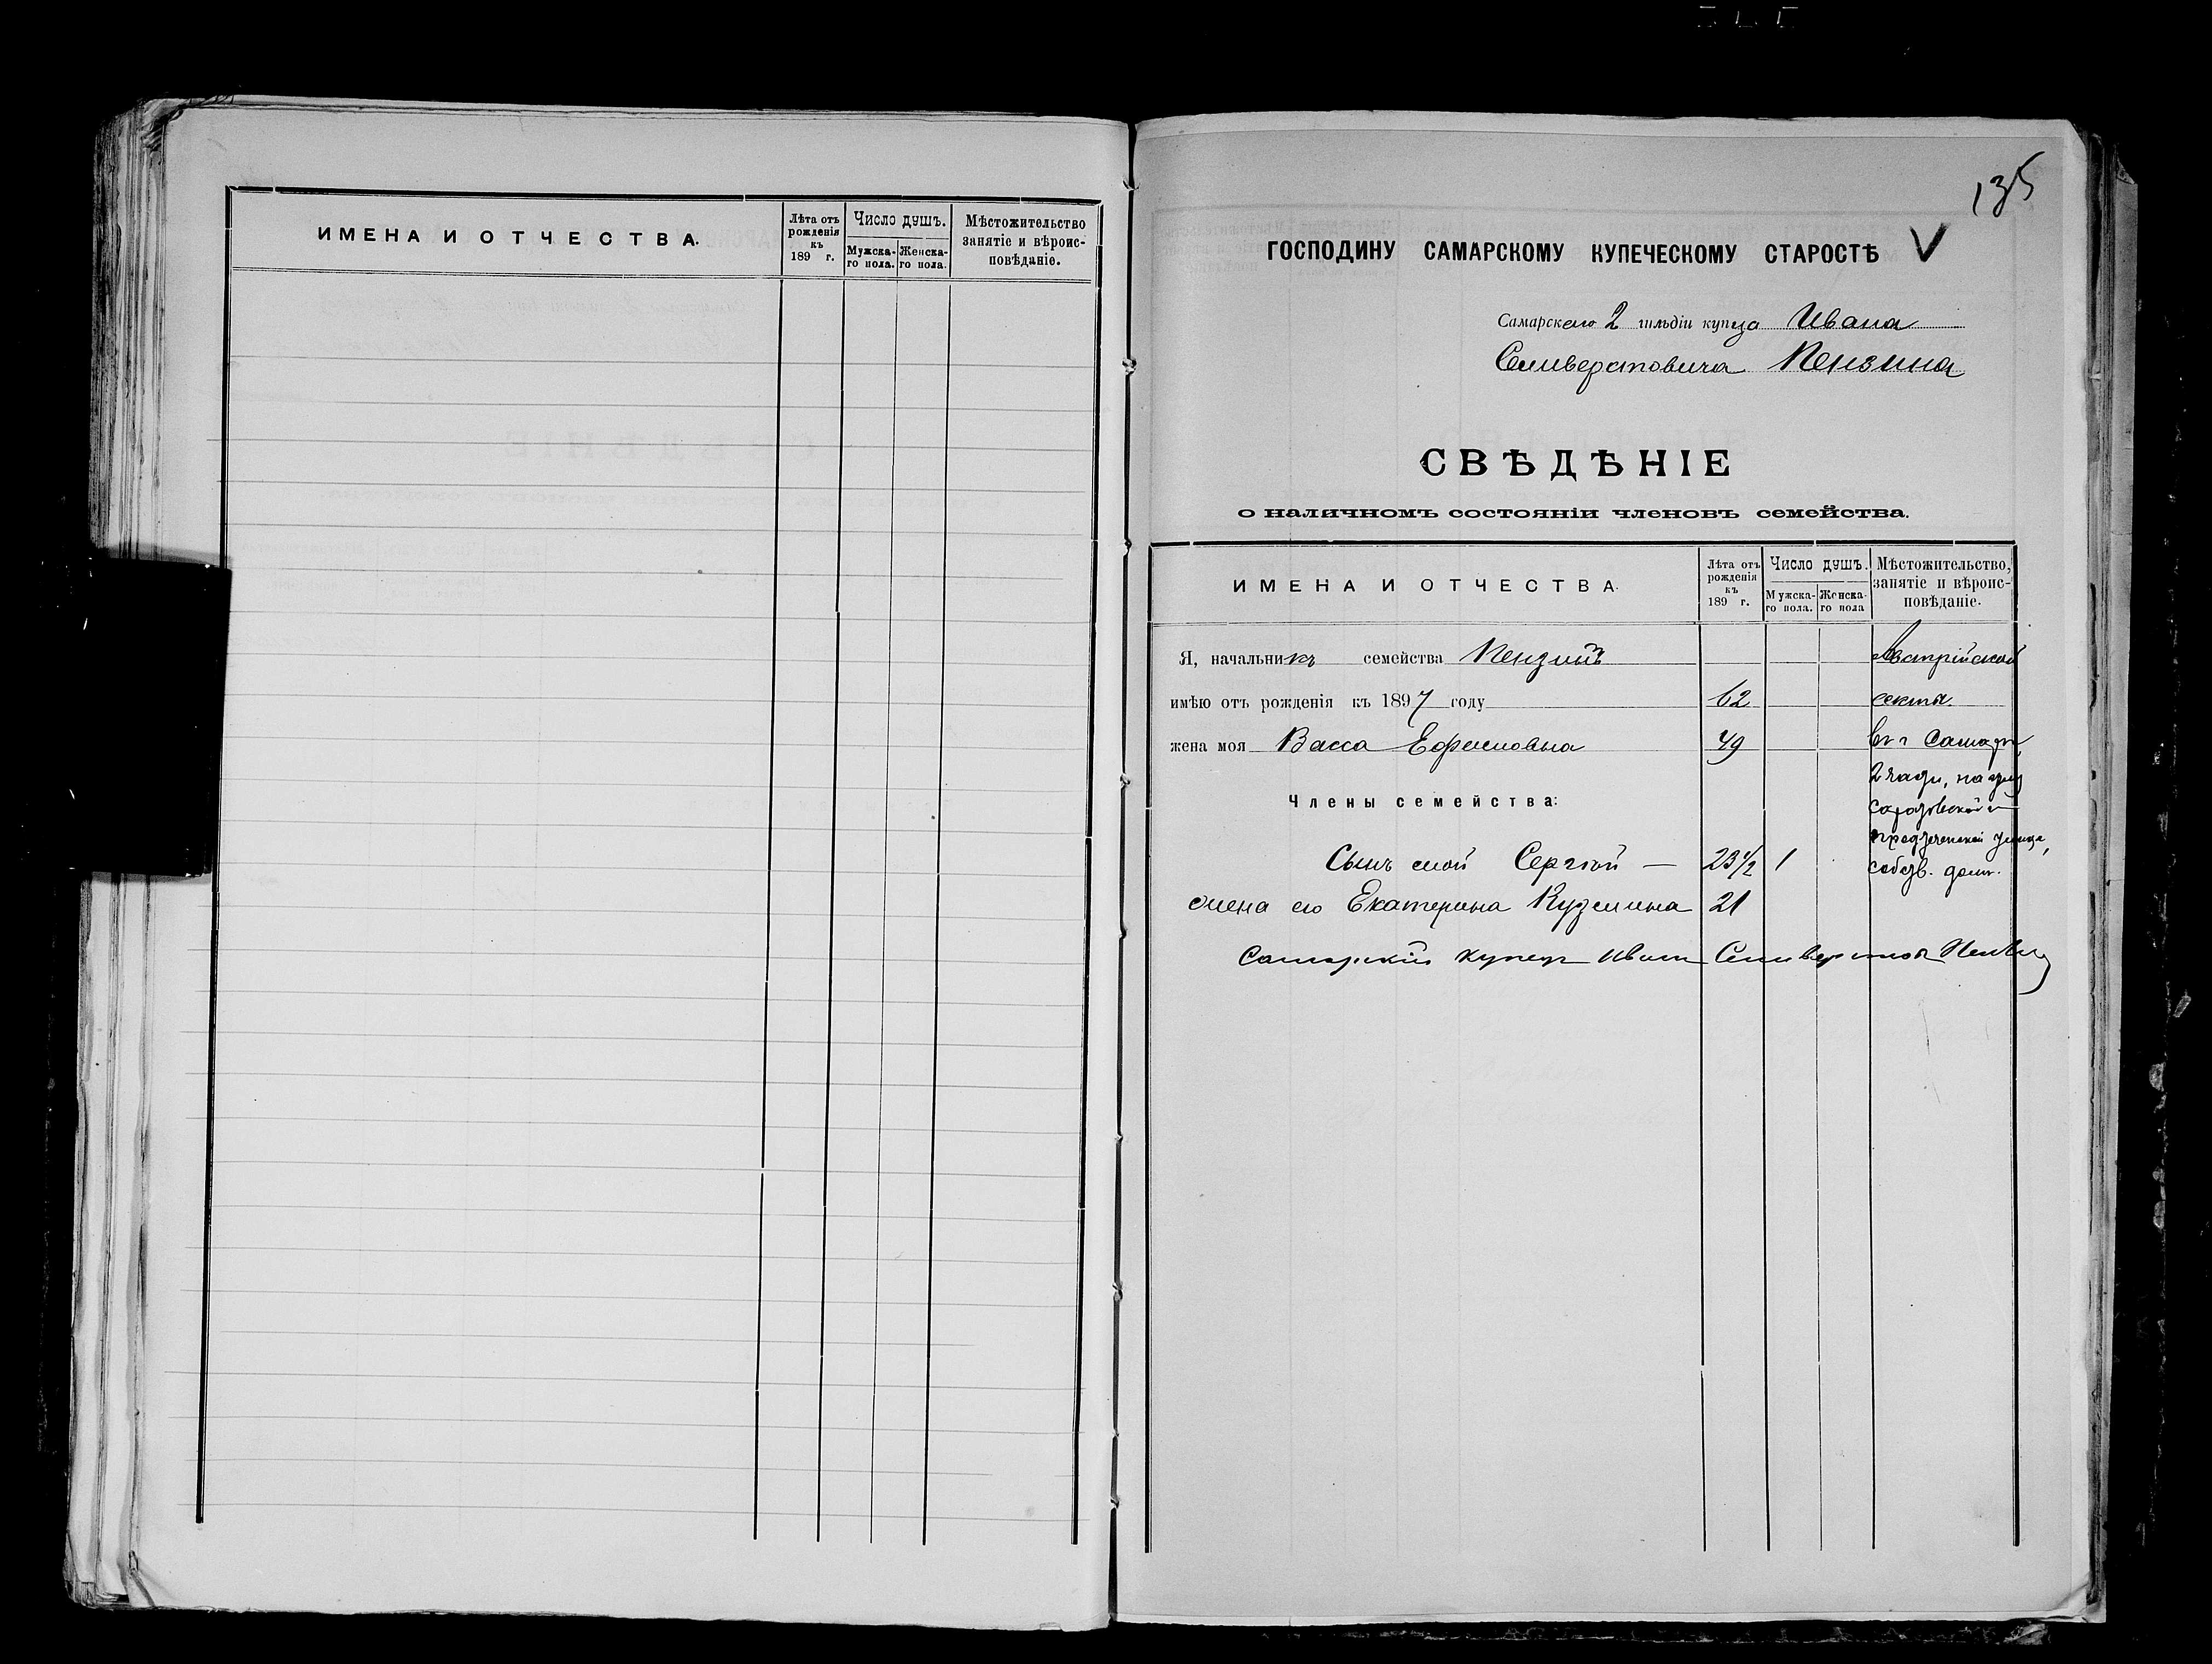 ИМЕНА И ОТЧЕСТВА.
Лѣта отъ рожденія къ 189 г.
Число душъ.
Мужска-го пола.
Женска-го пола.
Мѣстожительство занятіе и вѣроис-повѣданіе.
135
ГОСПОДИНУ САМАРСКОМУ КУПЕЧЕСКОМУ СТАРОСТѢ V
Самарскаго 2 гильдіи купца Ивана
Селиверстовича Пензина
СВѢДѢНІЕ
о наличномъ состояніи членовъ семейства.
ИМЕНА И ОТЧЕСТВА.
Лѣта отъ рожденія къ 189 г.
Число душъ.
Мужска-го пола.
Женска-го пола
Мѣстожительство, занятіе и вѣроис-повѣданіе.
Я, начальникъ семейства Пензинъ Австрійской
имѣю отъ рожденія къ 1897 году 62 секты.
жена моя Васса Ефимовна 49 въ г Самарѣ,
2 части, на углу
Члены семейства:
Саратовской и
Предтеченской улицъ,
Сынъ мой Сергѣй — 23½ 1 собств. домъ.
жена его Екатерина Кузмина 21
Самарскій купецъ Иванъ Селиверстов Пензин